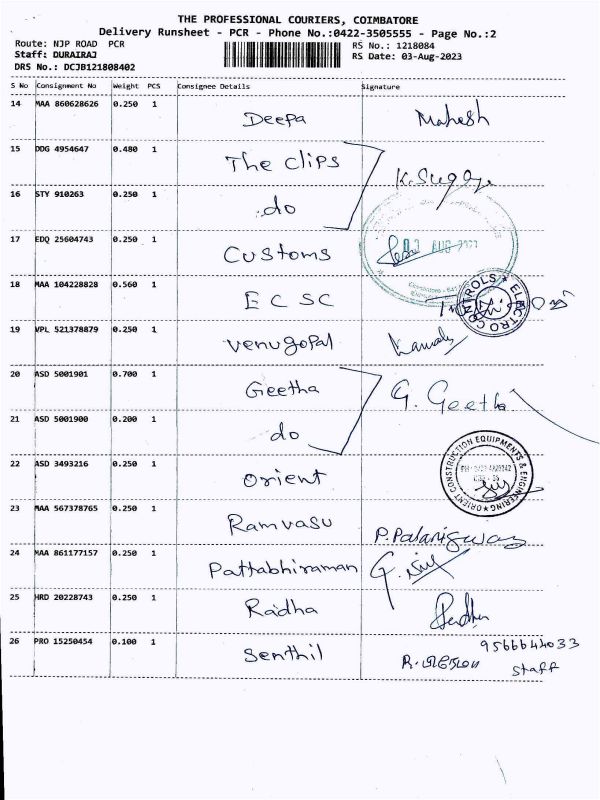 THE PROFESSIONAL COURIERS, COIMBATORE
Delivery Runsheet - PCR - Phone No.:0422-3505555 - Page No.:2
Route: NJP ROAD PCR
RS No.: 1218084
Staff: DURAIRAJ
RS Date: 03-Aug-2023
DRS No.: DCJB121808402
S No Consignment No Weight PCS Consignee Details Signature
14 MAA 860628626 0.250 1 Deepa Mahesh
15 DDG 4954647 0.480 1 The Clips
16 STY 910263 0.250 1 do
17 EDQ 25604743 0.250 1 Customs
18 MAA 104228828 0.560 1 E C S C
ELECTRO CONTROLS
19 VPL 521378879 0.250 1 venugopal
20 ASD 5001901 0.700 1 Geetha G. Geetha
21 ASD 5001900 0.200 1 do
22 ASD 3493216 0.250 1 Orient
ORIENT CONSTRUCTION EQUIPMENTS & ENGINEERING
23 MAA 567378765 0.250 1 Ramvasu P. Palaniswamy
24 MAA 861177157 0.250 1 Pattabhiraman
25 HRD 20228743 0.250 1 Radha
26 PRO 15250454 0.100 1 Senthil
9566644033
staff